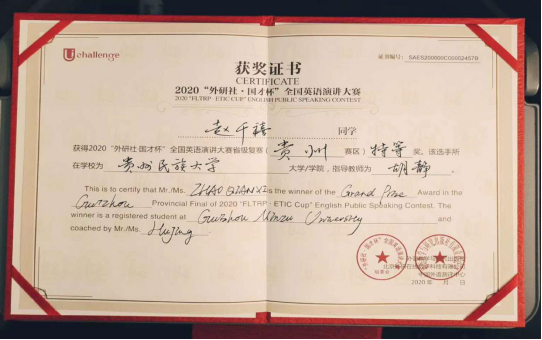 Uchallenge
证书编号：
获奖证书
CERTIFICATE
2020 “外研社·国才杯” 全国英语演讲大赛
2020 "FLTRP·ETIC CUP" ENGLISH PUBLIC SPEAKING CONTEST
赵千禧 同学
获得2020 “外研社·国才杯” 全国英语演讲大赛省级复赛（贵州 赛区）特等 奖。该选手所
在学校为 贵州民族大学 大学/学院，指导教师为 胡静
This is to certify that Mr./Ms. ZHAO QIANXI is the winner of the Grand Prize Award in the
Guizhou Provincial Final of 2020 "FLTRP·ETIC Cup" English Public Speaking Contest. The
winner is a registered student at Guizhou Minzu University and
coached by Mr./Ms. Hujing
2020 年 月